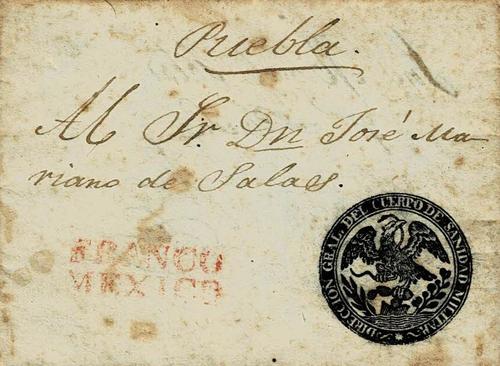 Puebla.
Al Sr. Dn José Ma-
riano de Salas.
FRANCO
MEXICO
DIRECCION GRAL. DEL CUERPO DE SANIDAD MILITAR